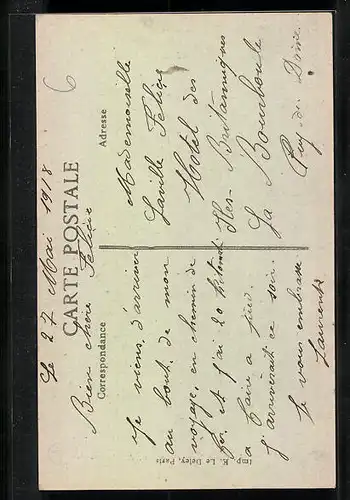 6
CARTE POSTALE
Le 27 Mai 1918
Correspondance
Bien chère Félicie
Je viens d'arriver
au bout de mon
voyage, en chemin de
fer et j'ai 20 kilomèt
a faire a pied.
j'arriverait ce soir.
Je vous embrasse
Laurent
Adresse
Mademoiselle
Laville Félicie
Hotel des
Iles Britanniques
La Bourboule
Puy-de-Dôme
Imp. E. Le Deley, Paris